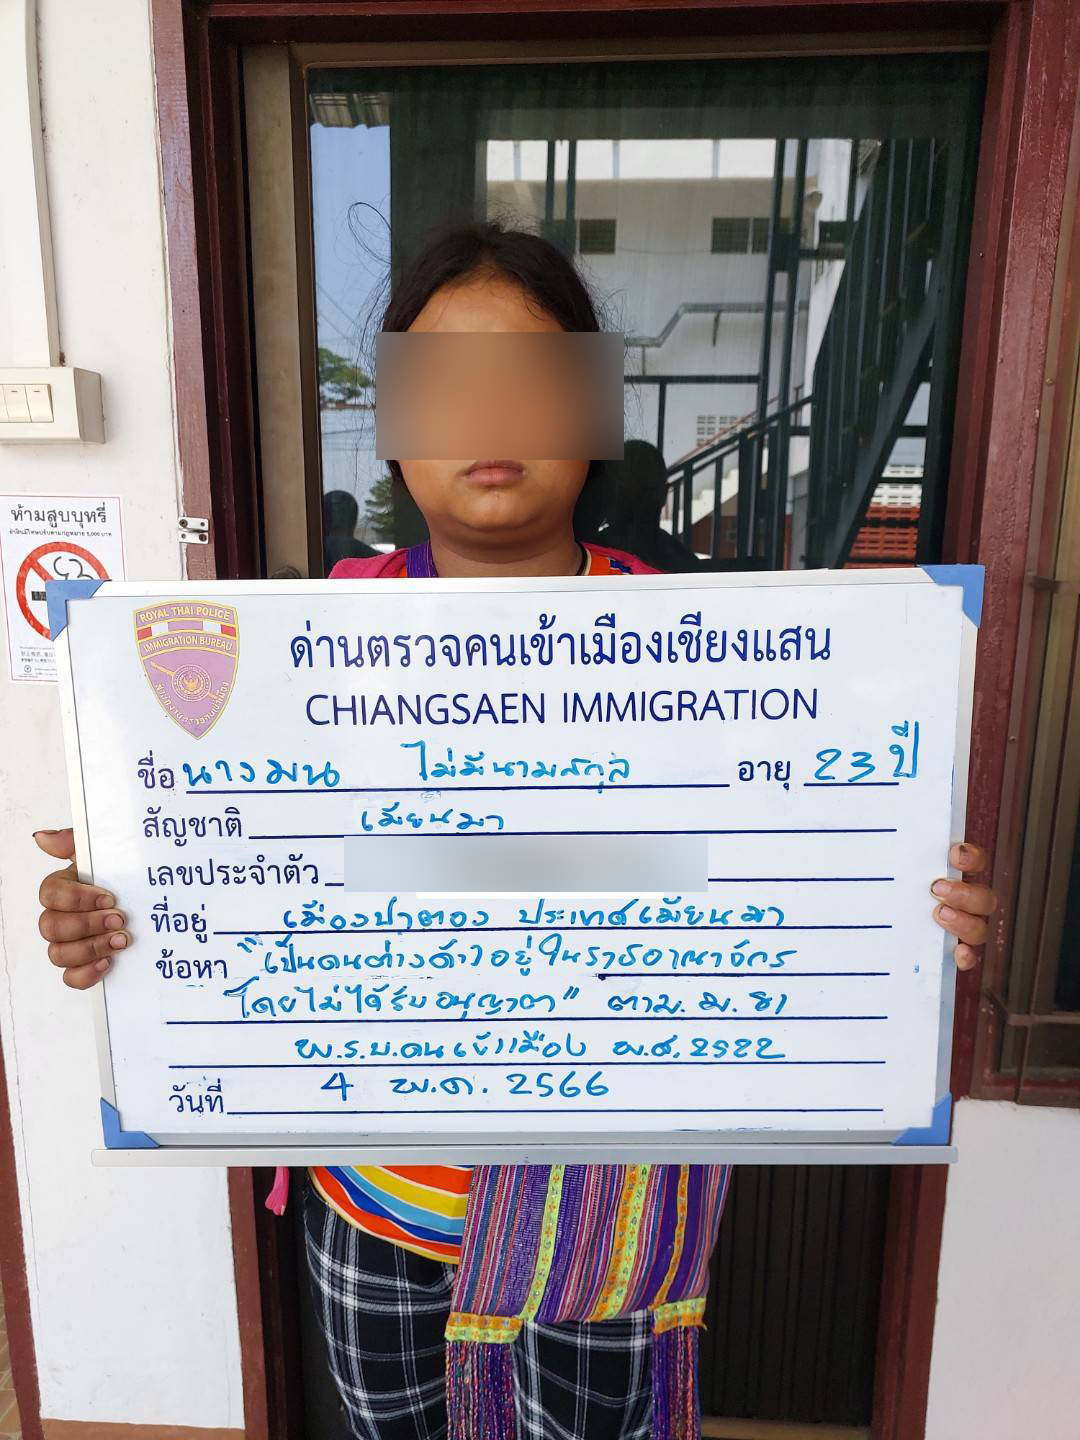 ห้ามสูบบุหรี่
ฝ่าฝืนมีโทษปรับตามกฎหมาย 5,000 บาท
ROYAL THAI POLICE
IMMIGRATION BUREAU
สำนักงานตรวจคนเข้าเมือง
ด่านตรวจคนเข้าเมืองเชียงแสน
CHIANGSAEN IMMIGRATION
ชื่อ นางมน ไม่มีนามสกุล อายุ 23 ปี
สัญชาติ เมียนมา
เลขประจำตัว
ที่อยู่ เมืองป่าตอง ประเทศเมียนมา
ข้อหา "เป็นคนต่างด้าวอยู่ในราชอาณาจักร
โดยไม่ได้รับอนุญาต" ตาม.ม.81
พ.ร.บ.คนเข้าเมือง พ.ศ.2522
วันที่ 4 พ.ค. 2566